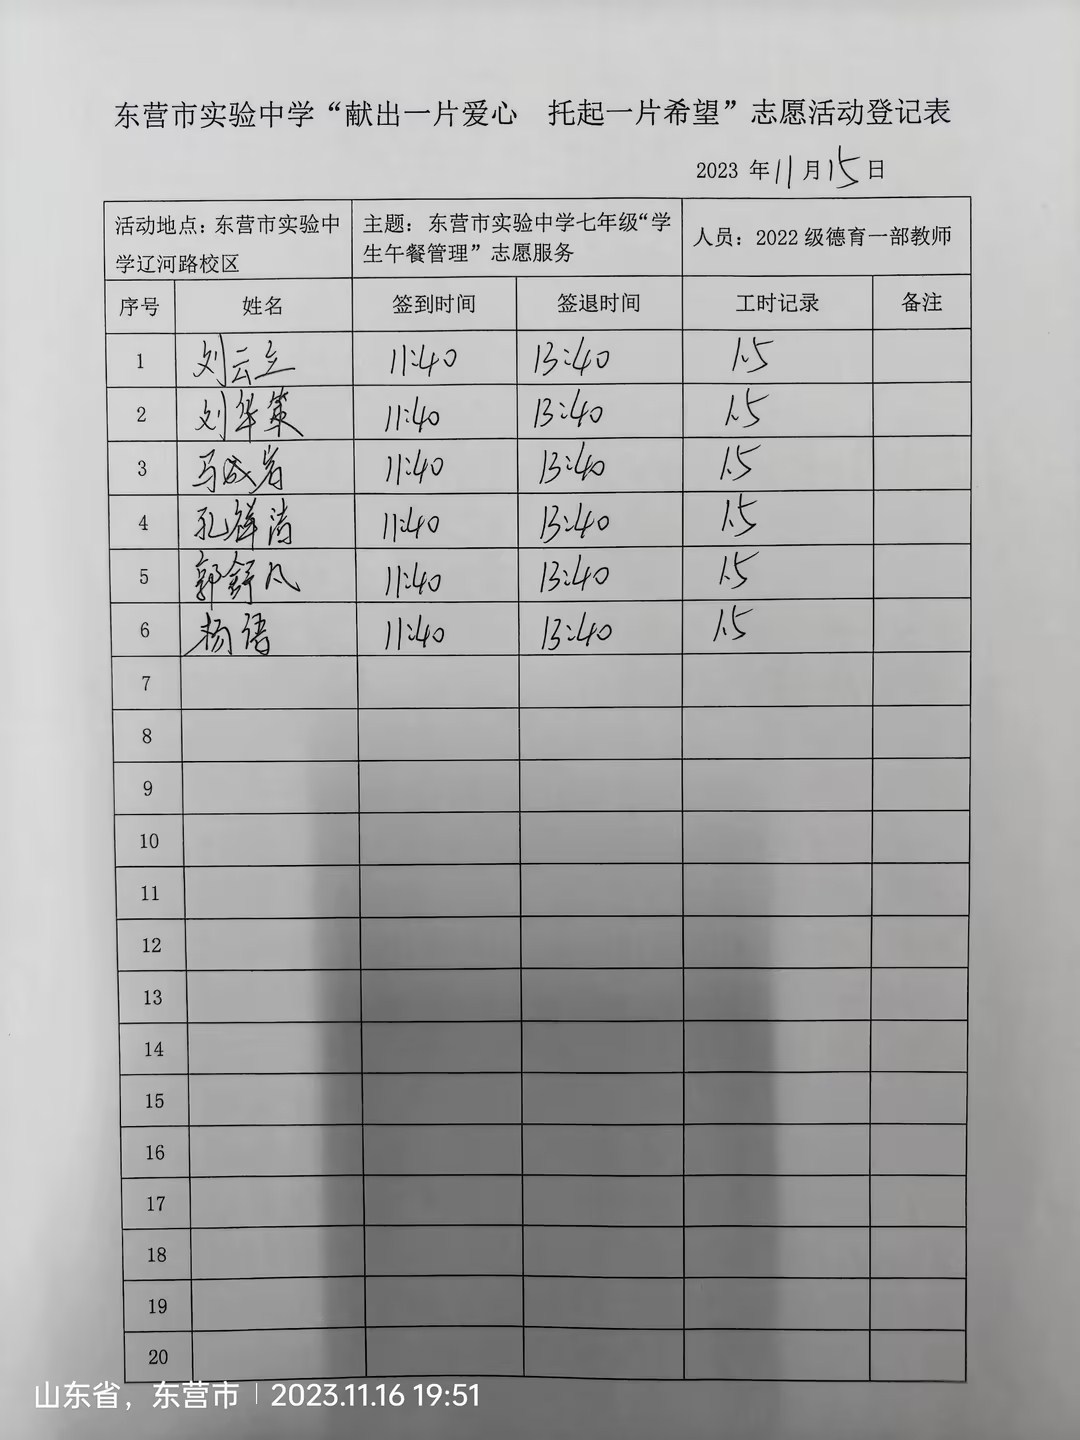 东营市实验中学“献出一片爱心　托起一片希望”志愿活动登记表
2023 年 11 月 15 日
活动地点：东营市实验中
学辽河路校区
主题：东营市实验中学七年级“学
生午餐管理”志愿服务
人员：2022 级德育一部教师
序号 姓名 签到时间 签退时间 工时记录 备注
1 刘云立 11:40 13:40 1.5
2 刘华策 11:40 13:40 1.5
3 马成岩 11:40 13:40 1.5
4 孔祥涛 11:40 13:40 1.5
5 郭舒凡 11:40 13:40 1.5
6 杨 11:40 13:40 1.5
7
8
9
10
11
12
13
14
15
16
17
18
19
20
山东省，东营市 | 2023.11.16 19:51